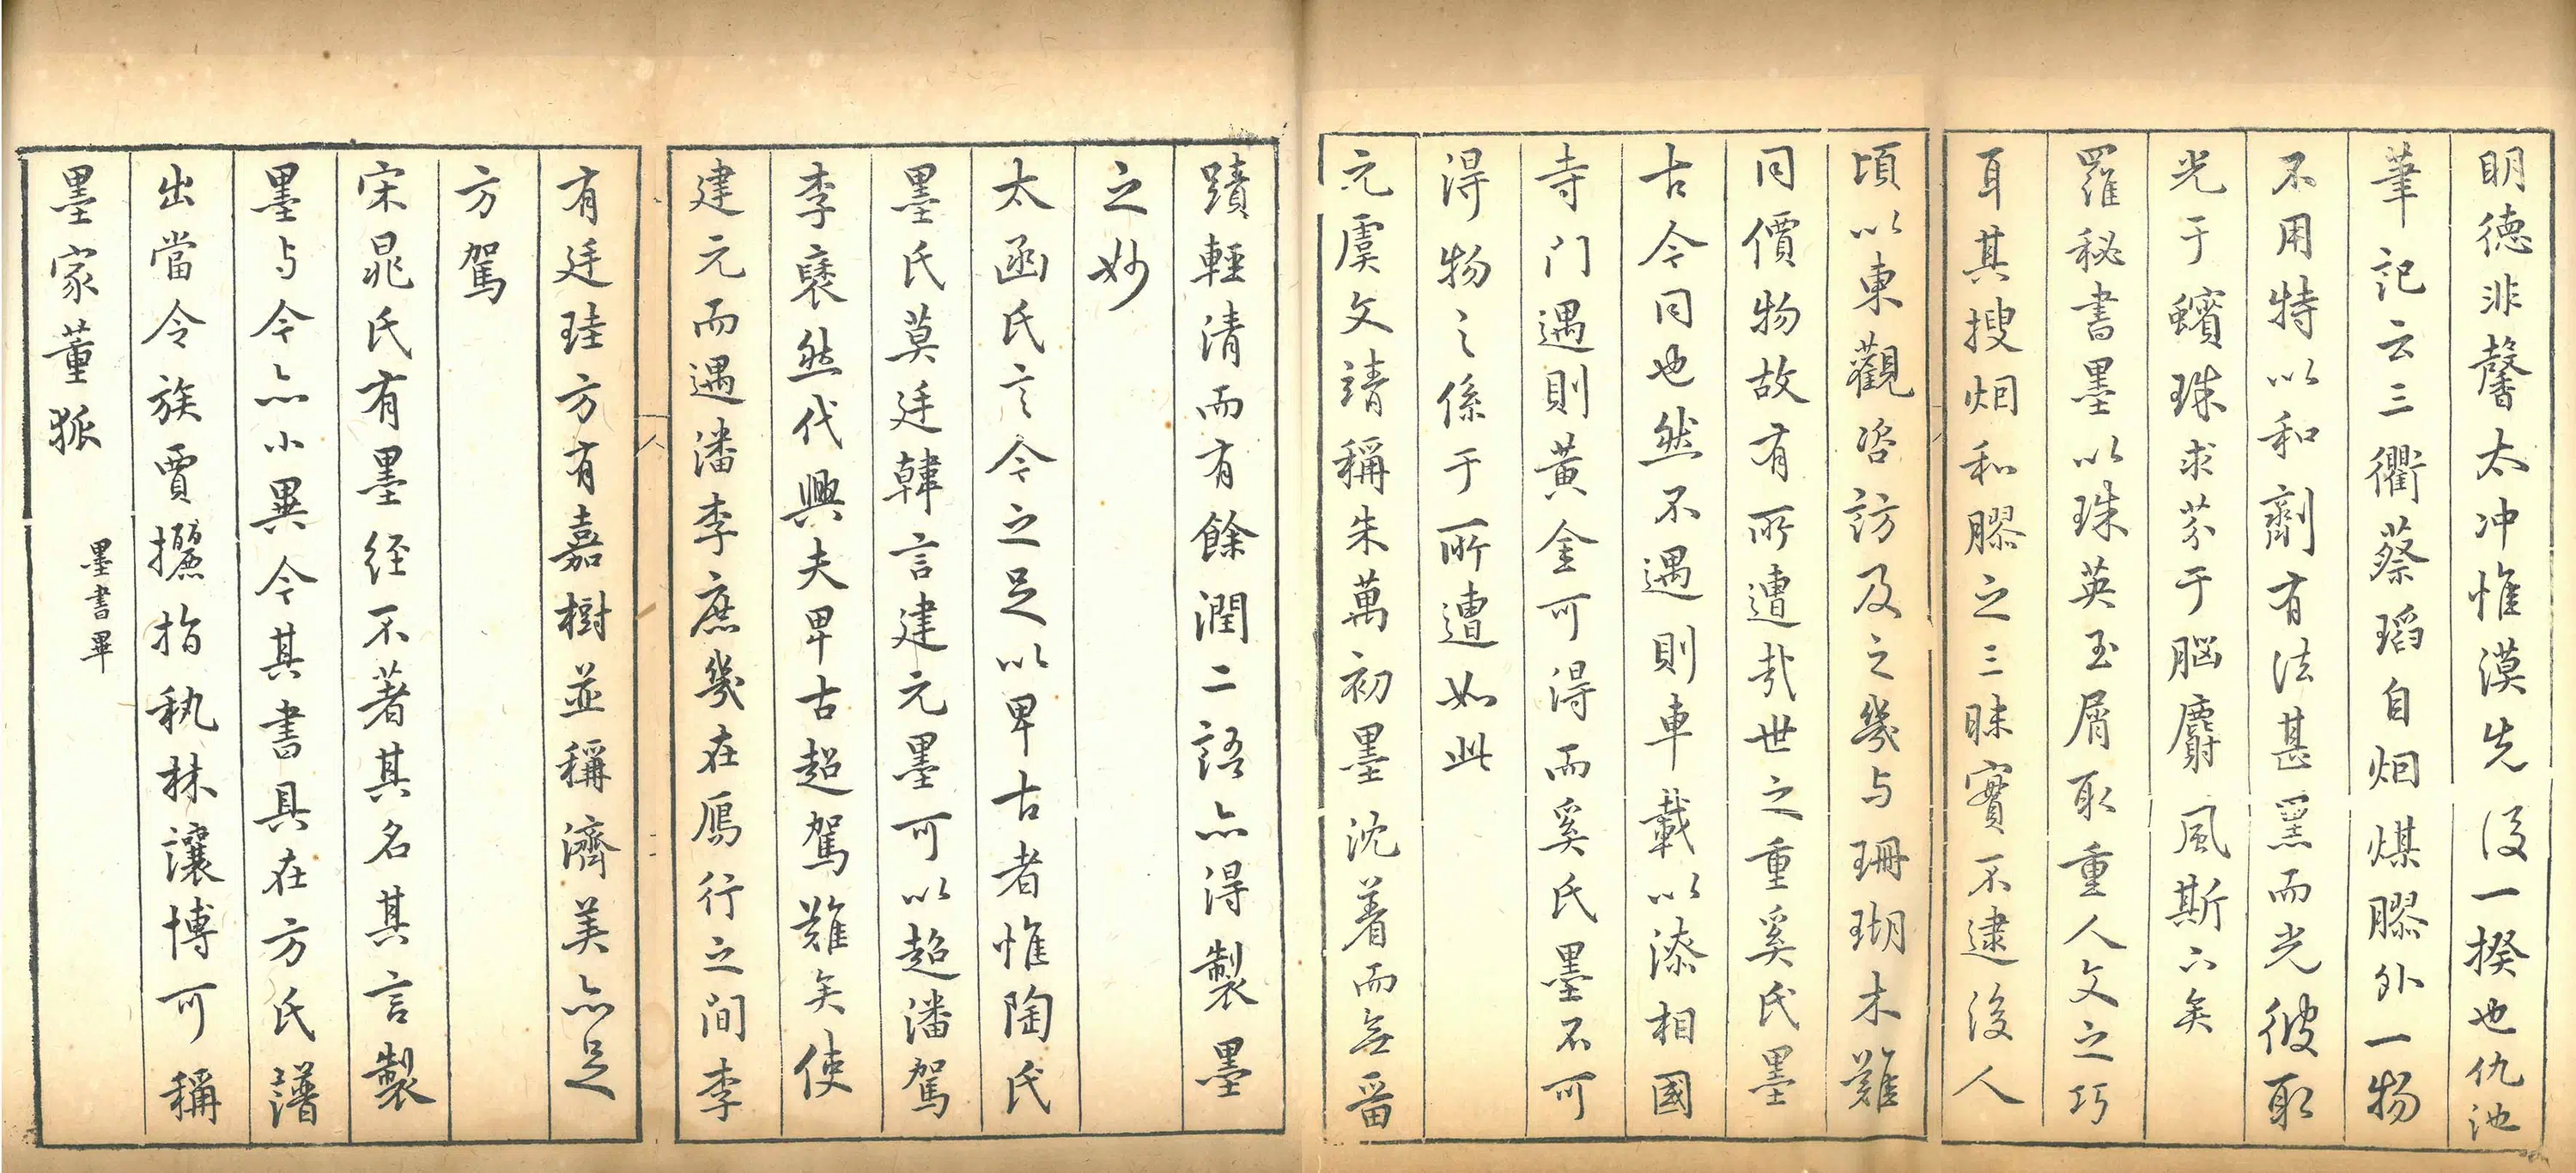 明德非馨太冲惟漠先后一揆也仇池
筆記云三衢蔡瑫自烟煤膠外一物
不用特以和劑有法甚黑而光彼取
光于蠙珠求芬于腦麝風斯下矣
羅秘書墨以珠英玉屑取重人文之巧
耳其搜烟和膠之三昧實不逮後人
頃以東觀咨訪及之幾与珊瑚木難
同價物故有所遭哉世之重奚氏墨
古今同也然不遇則車載以漆相國
寺门遇則黃金可得而奚氏墨不可
得物之係于所遭如此
元虞文靖稱朱萬初墨沈着而無留
蹟輕清而有餘潤二語亦得製墨
之妙
太函氏言今之足以卑古者惟陶氏
墨氏莫廷韓言建元墨可以超潘駕
李褎然代興夫卑古超駕難矣使
建元而遇潘李庶幾在鴈行之间李
有廷珪方有嘉樹並稱濟美亦足
方駕
宋晁氏有墨经不著其名其言製
墨与今亦小異今其書具在方氏譜
出當令族賈攦指執秫讓博可稱
墨家董狐
墨書畢